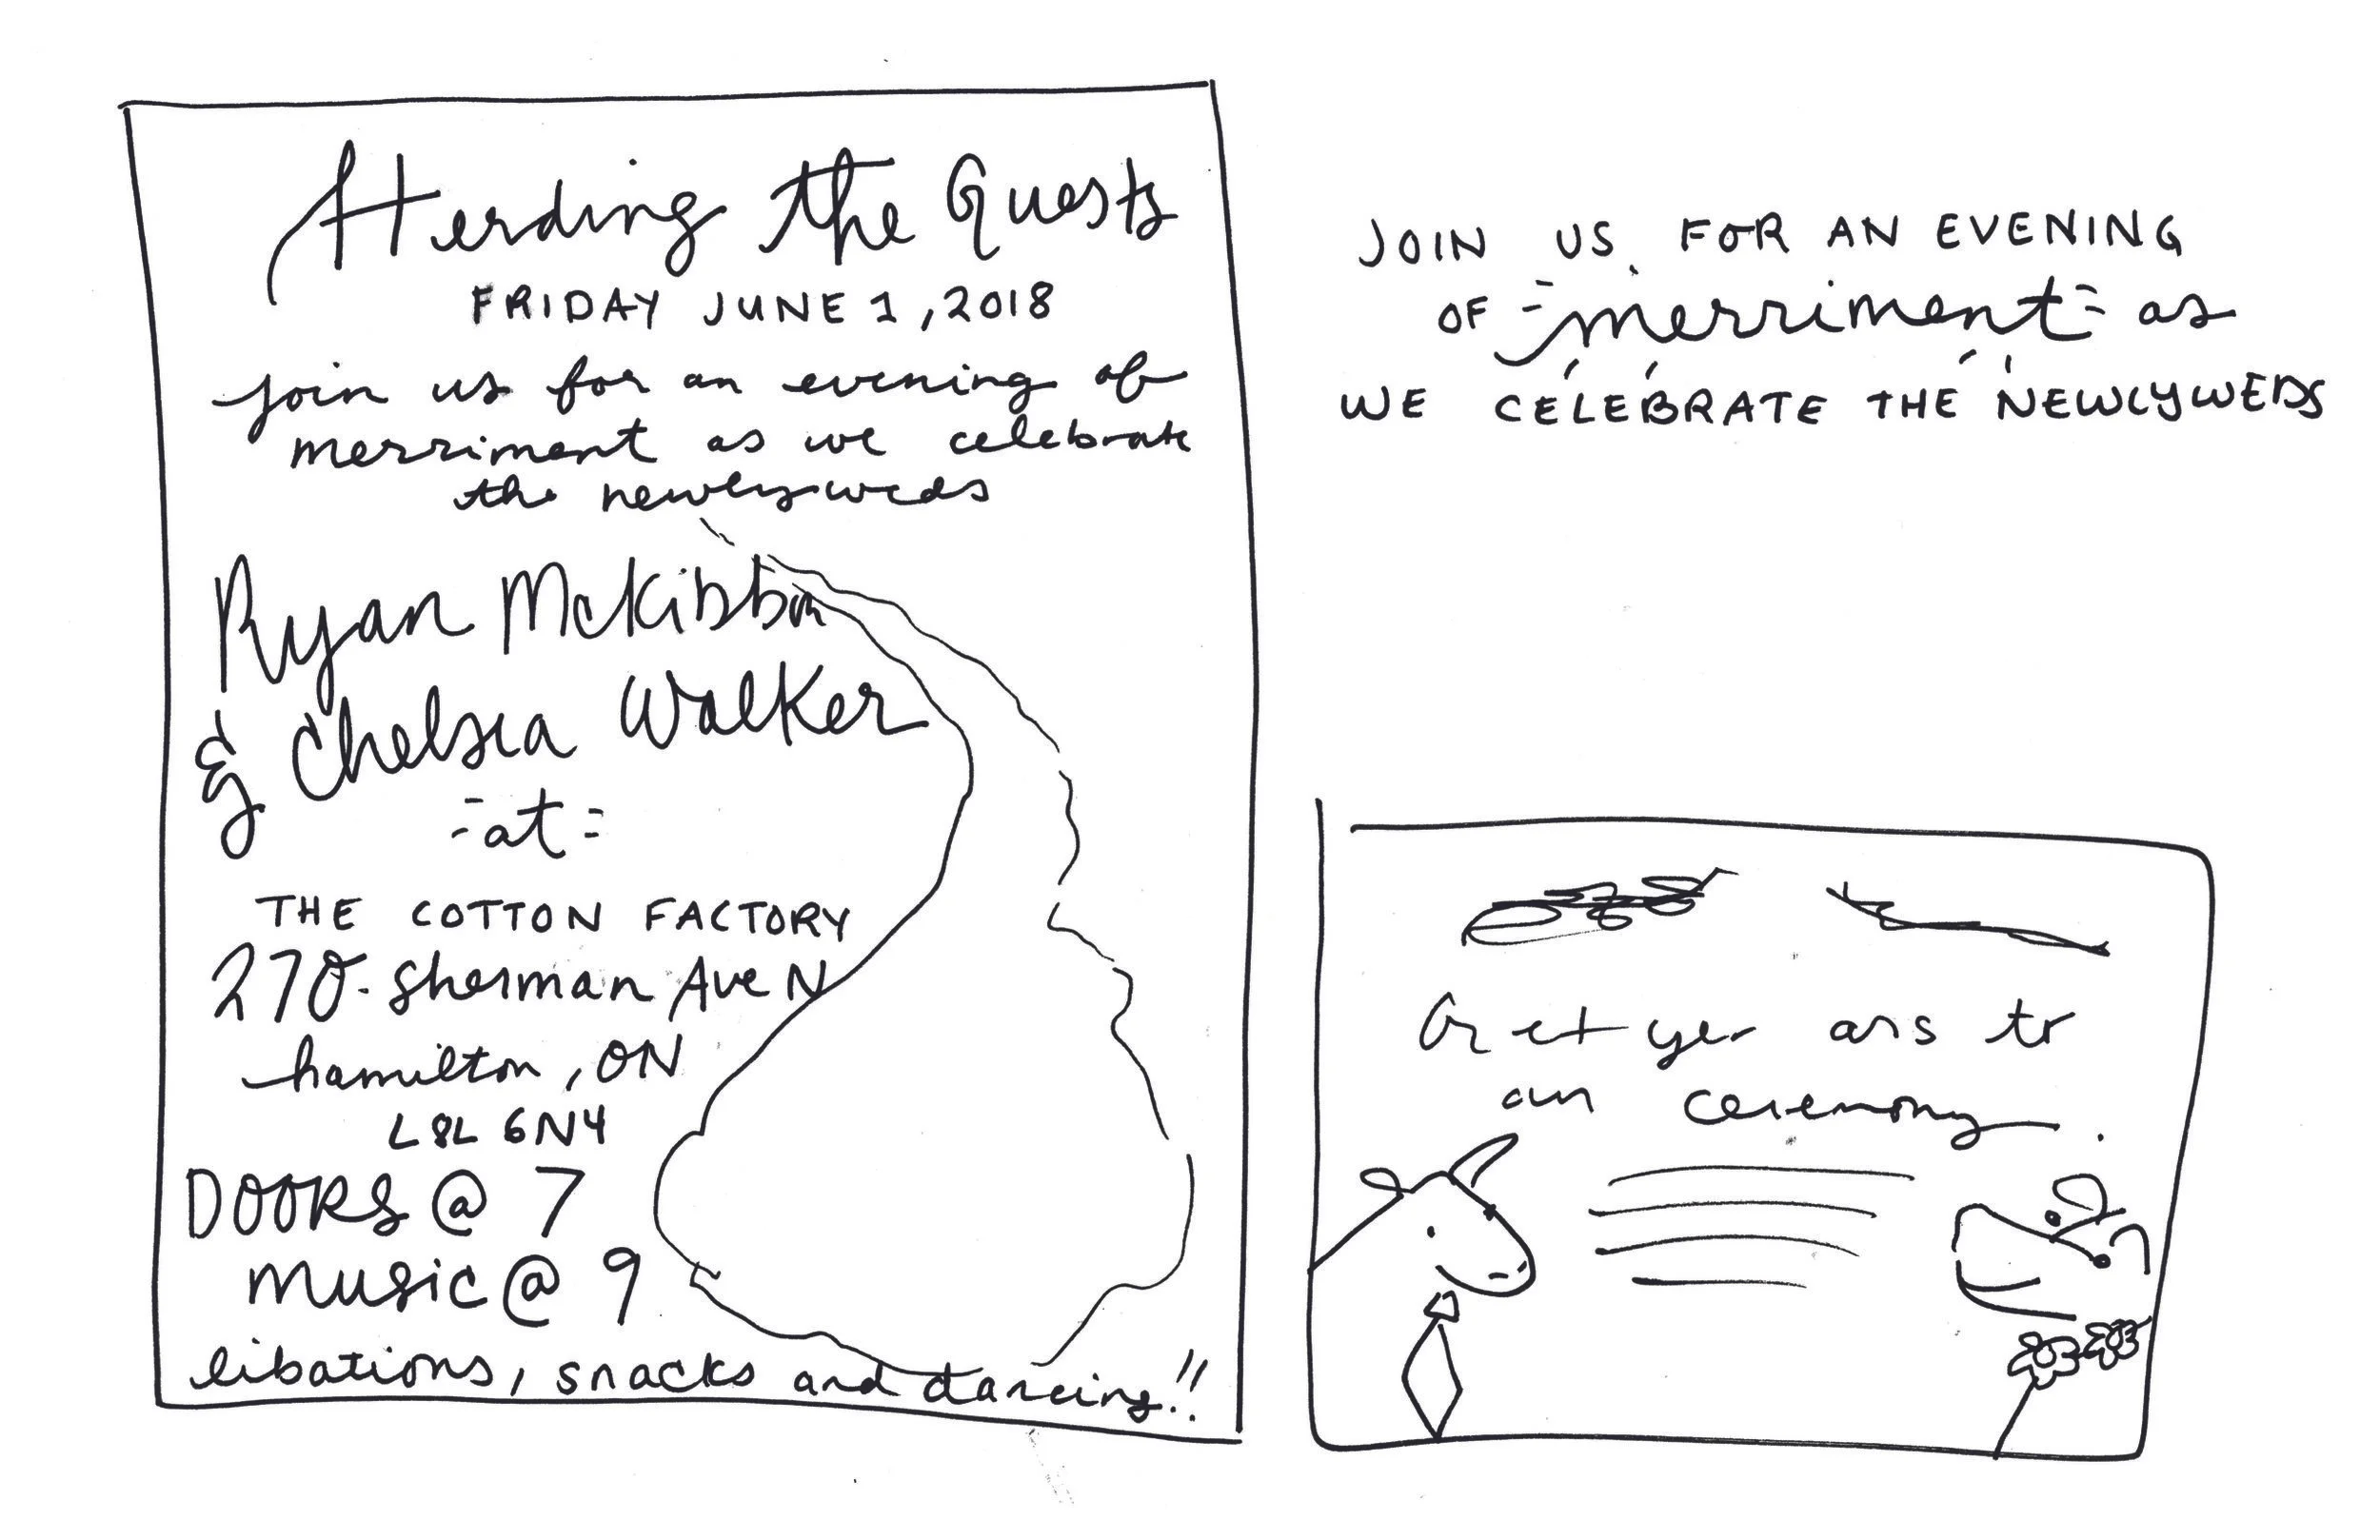 Herding the Guests
FRIDAY JUNE 1, 2018
join us for an evening of
merriment as we celebrate
the newlyweds
Ryan McKibbon
& Chelsea Walker
-at-
THE COTTON FACTORY
270 Sherman Ave N
hamilton, ON
L8L 6N4
DOORS @ 7
Music @ 9
libations, snacks and dancing!!
JOIN US FOR AN EVENING
OF merriment as
WE CELEBRATE THE NEWLYWEDS
Get yer to
ceremony.